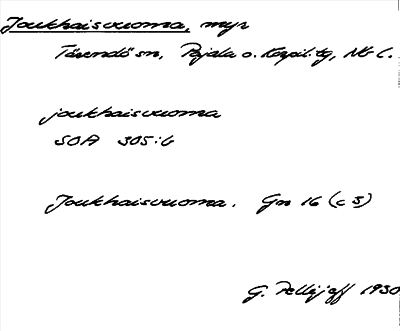 Joukhaisvuoma, myr
Tärendö sn, Pajala o. Korpil. tg, Nb l.
joukhaisvuoma
SOA 305:6
Joukhaisvuoma. Gn 16 (c 3)
G. Pellijeff 1980